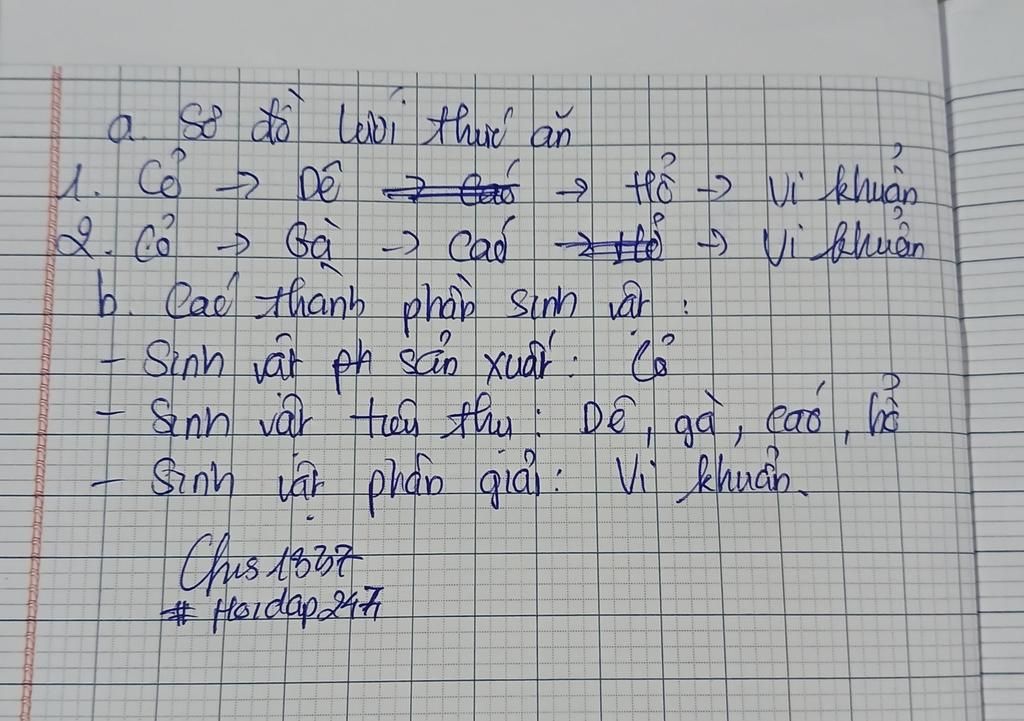 a. Sơ đồ lưới thức ăn
1. Cỏ → Dê → Cáo → Hổ → Vi khuẩn
2. Cỏ → Gà → Cáo → Hổ → Vi khuẩn
b. Các thành phần sinh vật :
- Sinh vật ph sản xuất : Cỏ
- Sinh vật tiêu thụ : Dê, gà, cáo, hổ
- Sinh vật phân giải : Vi khuẩn.
Chis1337
# Hoidap247